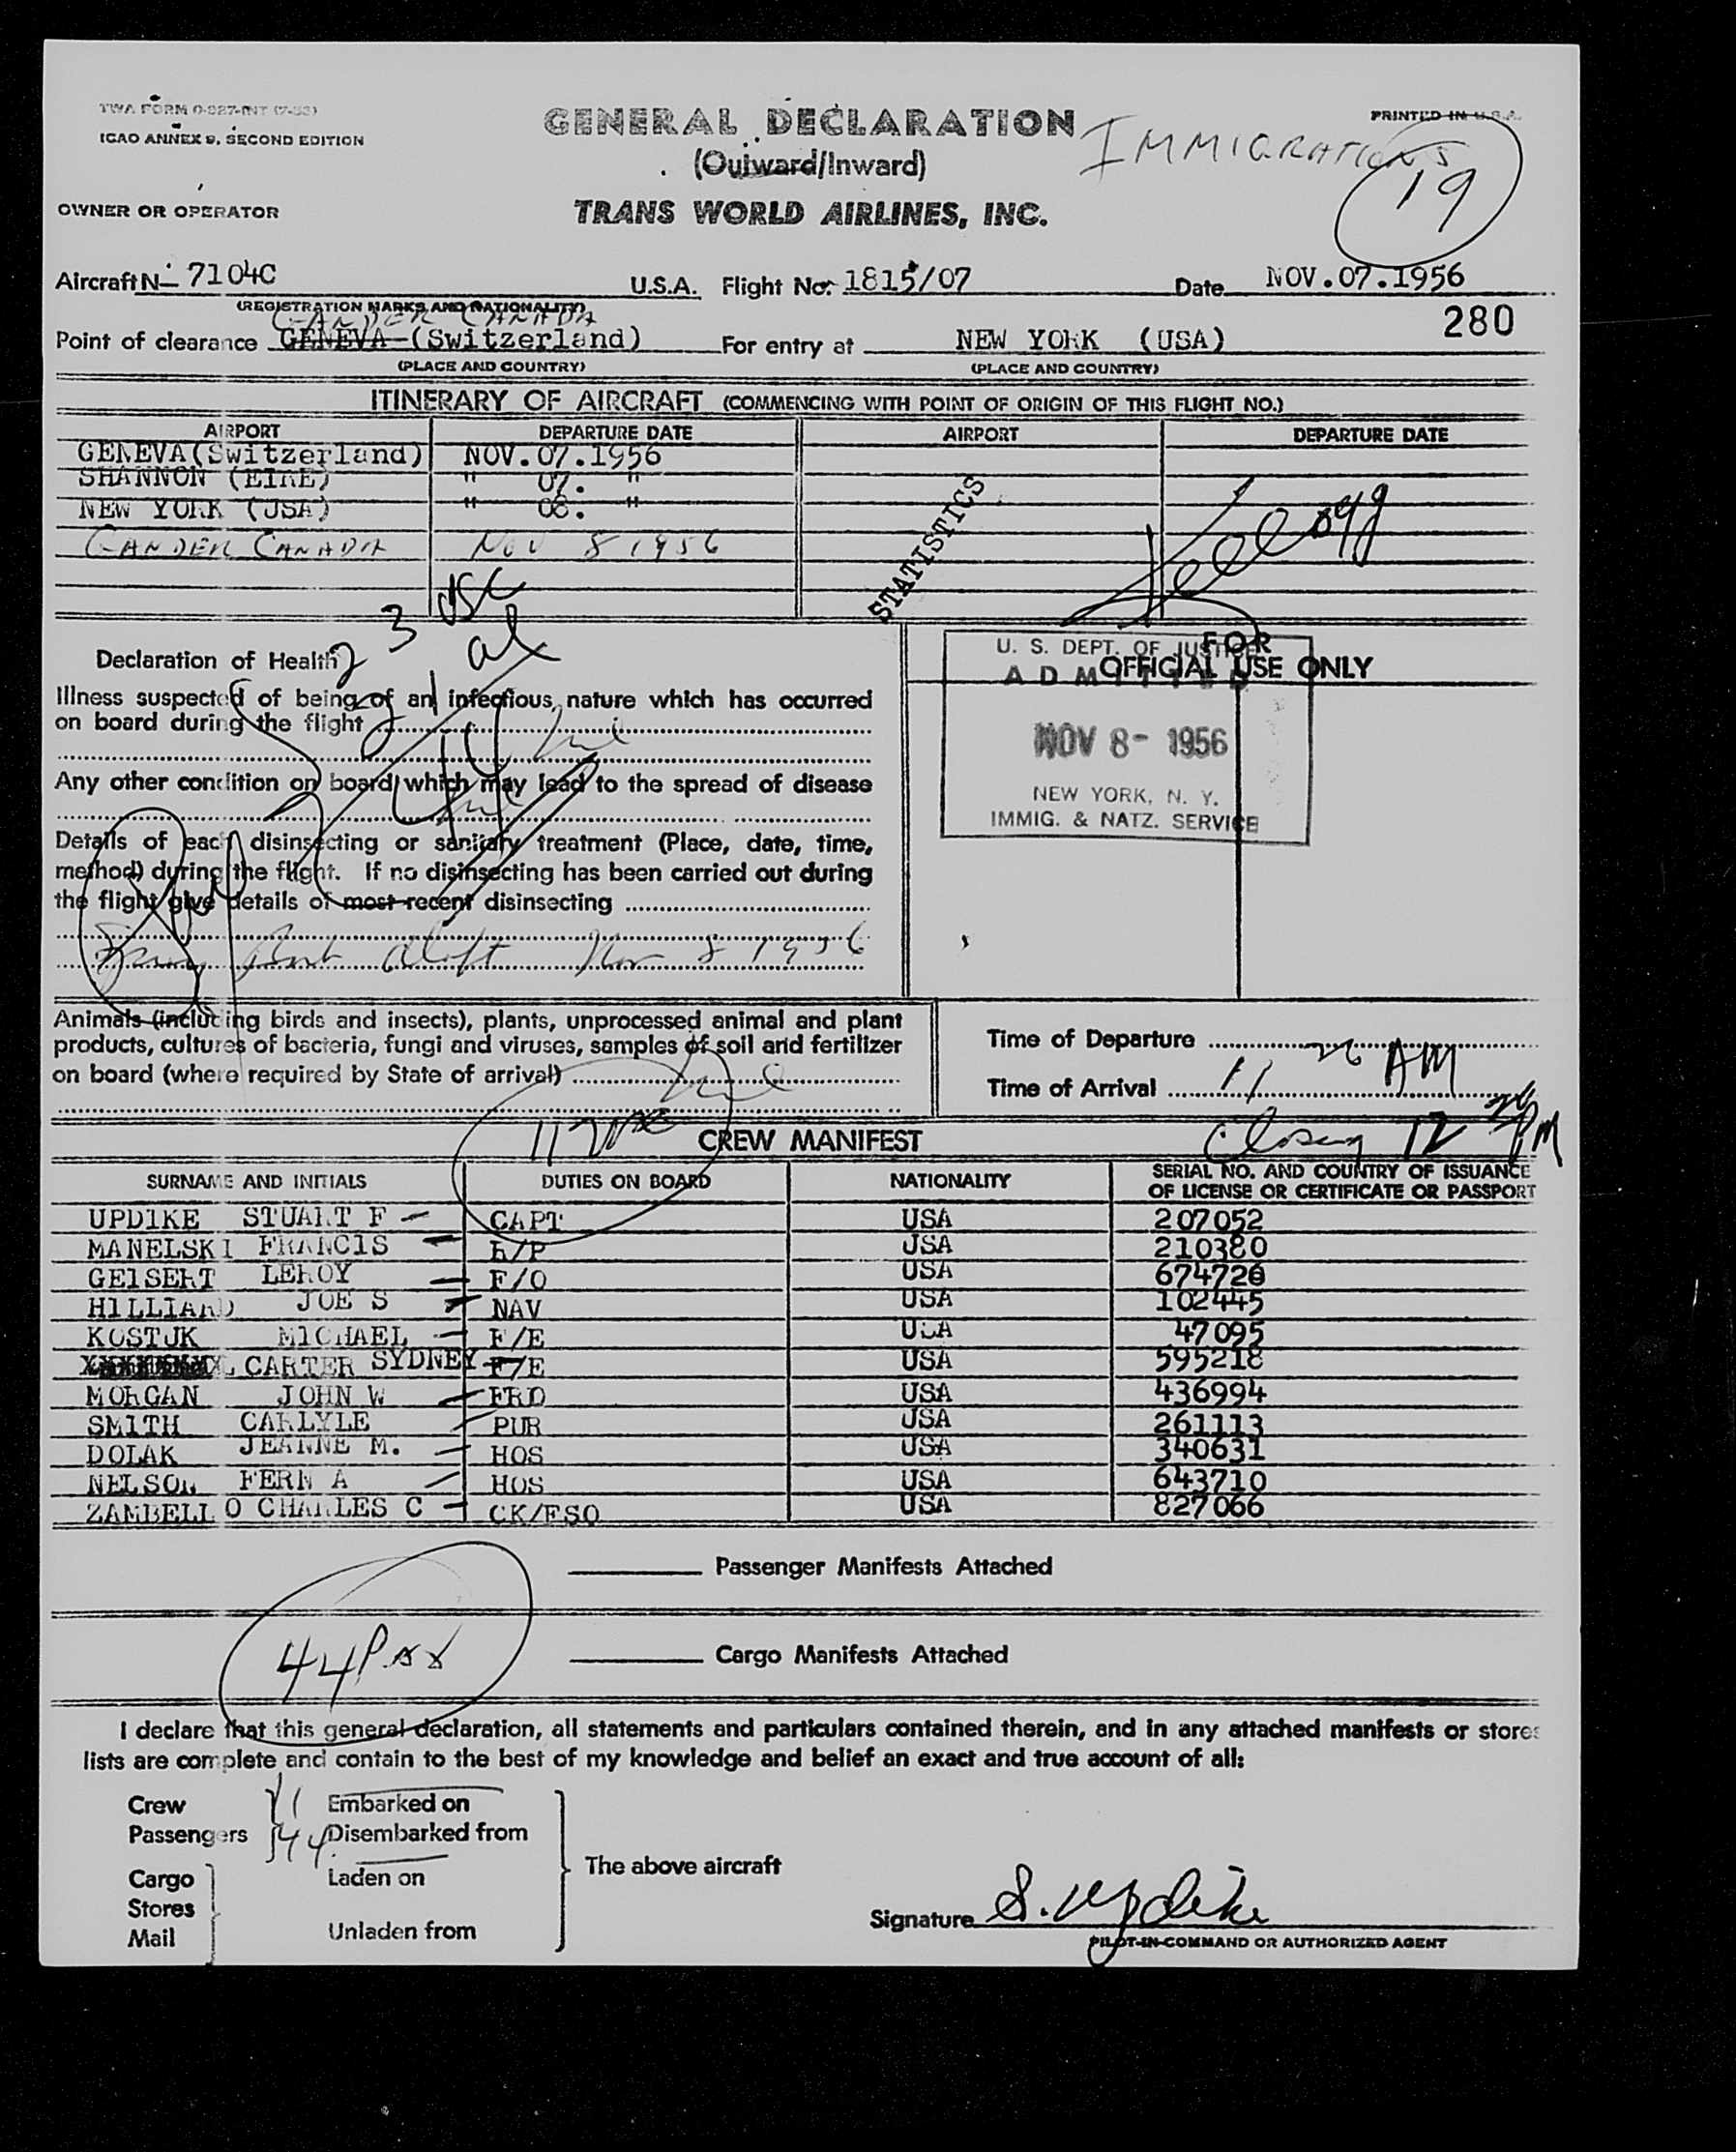 TWA FORM 0-927-INT (7-53)
ICAO ANNEX 9, SECOND EDITION
PRINTED IN U.S.A.
GENERAL DECLARATION
IMMIGRATIONS
(Outward/Inward)
19
OWNER OR OPERATOR
TRANS WORLD AIRLINES, INC.
Aircraft N- 7104C U.S.A. Flight No. 1815/07 Date NOV.07.1956
(REGISTRATION MARKS AND NATIONALITY)
GANDER CANADA
280
Point of clearance GENEVA (Switzerland) For entry at NEW YORK (USA)
(PLACE AND COUNTRY) (PLACE AND COUNTRY)
ITINERARY OF AIRCRAFT (COMMENCING WITH POINT OF ORIGIN OF THIS FLIGHT NO.)
AIRPORT DEPARTURE DATE AIRPORT DEPARTURE DATE
GENEVA(Switzerland) NOV.07.1956
SHANNON (EIRE) " 07. "
NEW YORK (USA) " 08. "
GANDER CANADA NOV 8 1956
STATISTICS
Kellogg
3 USC
2 al
Declaration of Health
FOR
OFFICIAL USE ONLY
U. S. DEPT. OF JUSTICE
ADMITTED
NOV 8- 1956
NEW YORK, N. Y.
IMMIG. & NATZ. SERVICE
Illness suspected of being of an infectious nature which has occurred
on board during the flight nil
Any other condition on board which may lead to the spread of disease
nil
Details of each disinsecting or sanitary treatment (Place, date, time,
method) during the flight. If no disinsecting has been carried out during
the flight give details of most recent disinsecting
Aloft Nov 8 1956
Animals (including birds and insects), plants, unprocessed animal and plant
products, cultures of bacteria, fungi and viruses, samples of soil and fertilizer
on board (where required by State of arrival) nil
Time of Departure
Time of Arrival 11 26 AM
Closing 12 PM
CREW MANIFEST
SURNAME AND INITIALS DUTIES ON BOARD NATIONALITY SERIAL NO. AND COUNTRY OF ISSUANCE
OF LICENSE OR CERTIFICATE OR PASSPORT
UPDIKE STUART F CAPT USA 207052
MANELSKI FRANCIS R/P USA 210380
GEISERT LEROY F/O USA 674726
HILLIARD JOE S NAV USA 102445
KOSTUK MICHAEL F/E USA 47095
CARTER SYDNEY F/E USA 595218
MORGAN JOHN W FRD USA 436994
SMITH CARLYLE PUR USA 261113
DOLAK JEANNE M. HOS USA 340631
NELSON FERN A HOS USA 643710
ZAMBELLO CHARLES C CK/FSO USA 827066
Passenger Manifests Attached
44 Pax
Cargo Manifests Attached
I declare that this general declaration, all statements and particulars contained therein, and in any attached manifests or stores
lists are complete and contain to the best of my knowledge and belief an exact and true account of all:
Crew 11 Embarked on
Passengers 44 Disembarked from
The above aircraft
Cargo Laden on
Stores
Mail Unladen from
Signature S. Updike
PILOT-IN-COMMAND OR AUTHORIZED AGENT